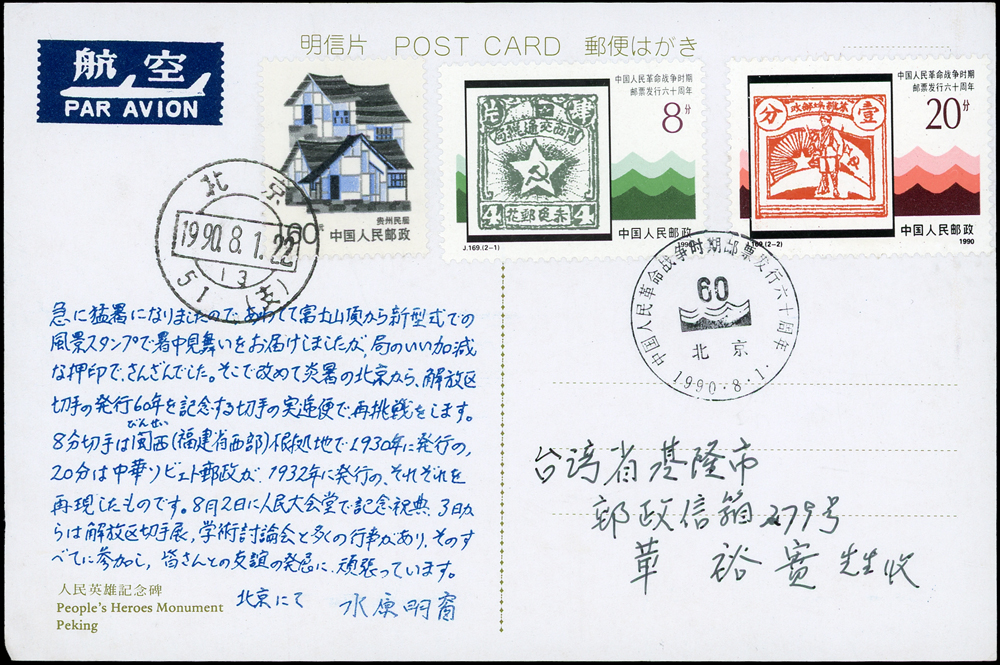 明信片 POST CARD 郵便はがき
航空
PAR AVION
贵州民居
中国人民邮政
中国人民革命战争时期
邮票发行六十周年
8分
闽西交通總局
肆
片
4 赤色郵花 4
中国人民邮政
J.169.(2-1)
中国人民革命战争时期
邮票发行六十周年
20分
分
壹
中国人民邮政
J.169.(2-2) 1990
北京
1990.8.1.22
13
51(支)
中国人民革命战争时期邮票发行六十周年
60
北京
1990·8·1·
急に猛暑になりましたので、あわてて富士山頂から新型式での
風景スタンプで暑中見舞いをお届けしましたが、局のいい加減
な押印で、さんざんでした。そこで改めて炎暑の北京から、解放区
切手の発行60年を記念する切手の実逓便で再挑戦をします。
びんせい
8分切手は閩西(福建省西部)根拠地で1930年に発行の、
20分は中華ソビエト郵政が、1932年に発行の、それぞれを
再現したものです。8月2日に人民大会堂で記念祝典、3日か
らは解放区切手展、学術討論会と多くの行事があり、そのす
べてに参加し、皆さんとの友誼の発展に、頑張っています。
北京にて 水原明窗
人民英雄記念碑
People's Heroes Monument
Peking
台湾省基隆市
郵政信箱279号
華裕寶先生收